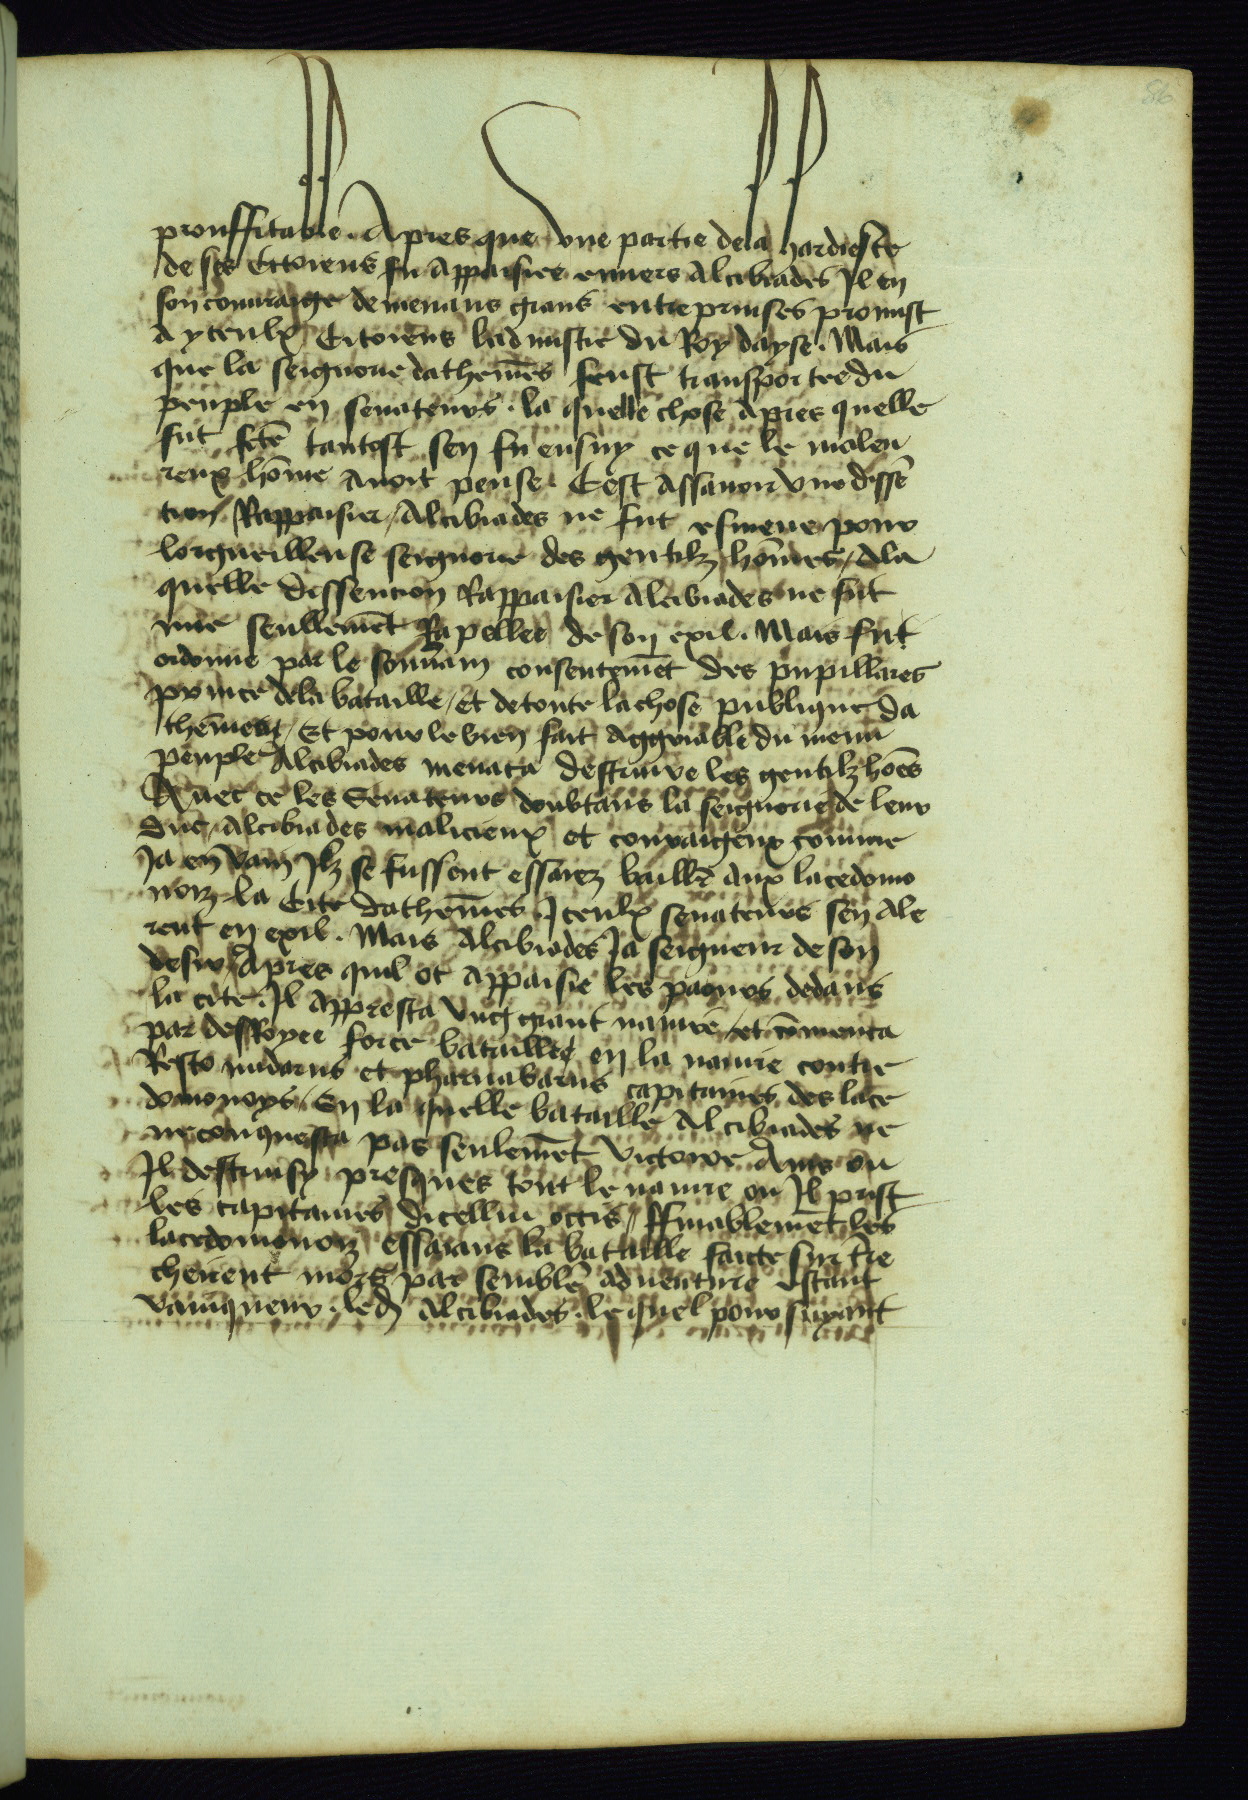 86
prouffitable. Apres que une partie de la hardiesce
de ses Citoiens fu appaisiee envers Alcibiades Il en
son couuraige demenans grans entreprinses promist
a yceulx Citoiens ladmistie du Roy dayse. Mais
que la seignorie dathen̄es feust transportee du
peuple en senateurs. la quelle chose apres quelle
fut fcte tantost sen fu ensuy ce que le maleu
reux hōme auoit pense. Cest assauoir une dissē
tion Rappaisier / Alcibiades ne fut esmeue pour
lorgueilleuse seignorie des gentilz hōmes / a la
quelle dissention Rappaisier Alcibiades ne fut
mie seullemēt Rapellee de son exil. Mais fut
ordonne par le souuain consentemēt des pupillares
prince de la bataille / et de toute la chose publique da
then̄es / Et pour le bien fait aggreable du menu
peuple Alcibiades menaca destruire les gentilz hōes
Auec ce les Senateurs doubtans la seignorie de leur
duc / Alcibiades malicieux et couraigeux comme
Ja en vain Ilz se fussent essaiez baillr̄ aux lacedomo
noiz la Cite dathen̄es Iceulx senateurs sen ale
rent en exil. Mais Alcibiades Ja seigneur de son
desir / Apres quil ot appaisie les paours dedans
la cite. Il appresta ung grant nauire / et cōmenca
par desployee force batailler en la nauire contre
Resto mdarus et pharnabarus capitaines des lace
domonoys / En la quelle bataille Alcibiades ne
ne conquesta pas seulemēt victoire Ains ou
Il destruisy presques tout le nauire ou Il prist
les capitaines dicellui occis / ffinablemēt les
lacedomonoiz essaians la bataille faicte sur tr̄e
cheirent mors par semblr̄ aduenture estant
vainqueur. led̄ Alcibiades. le quel poursuyant